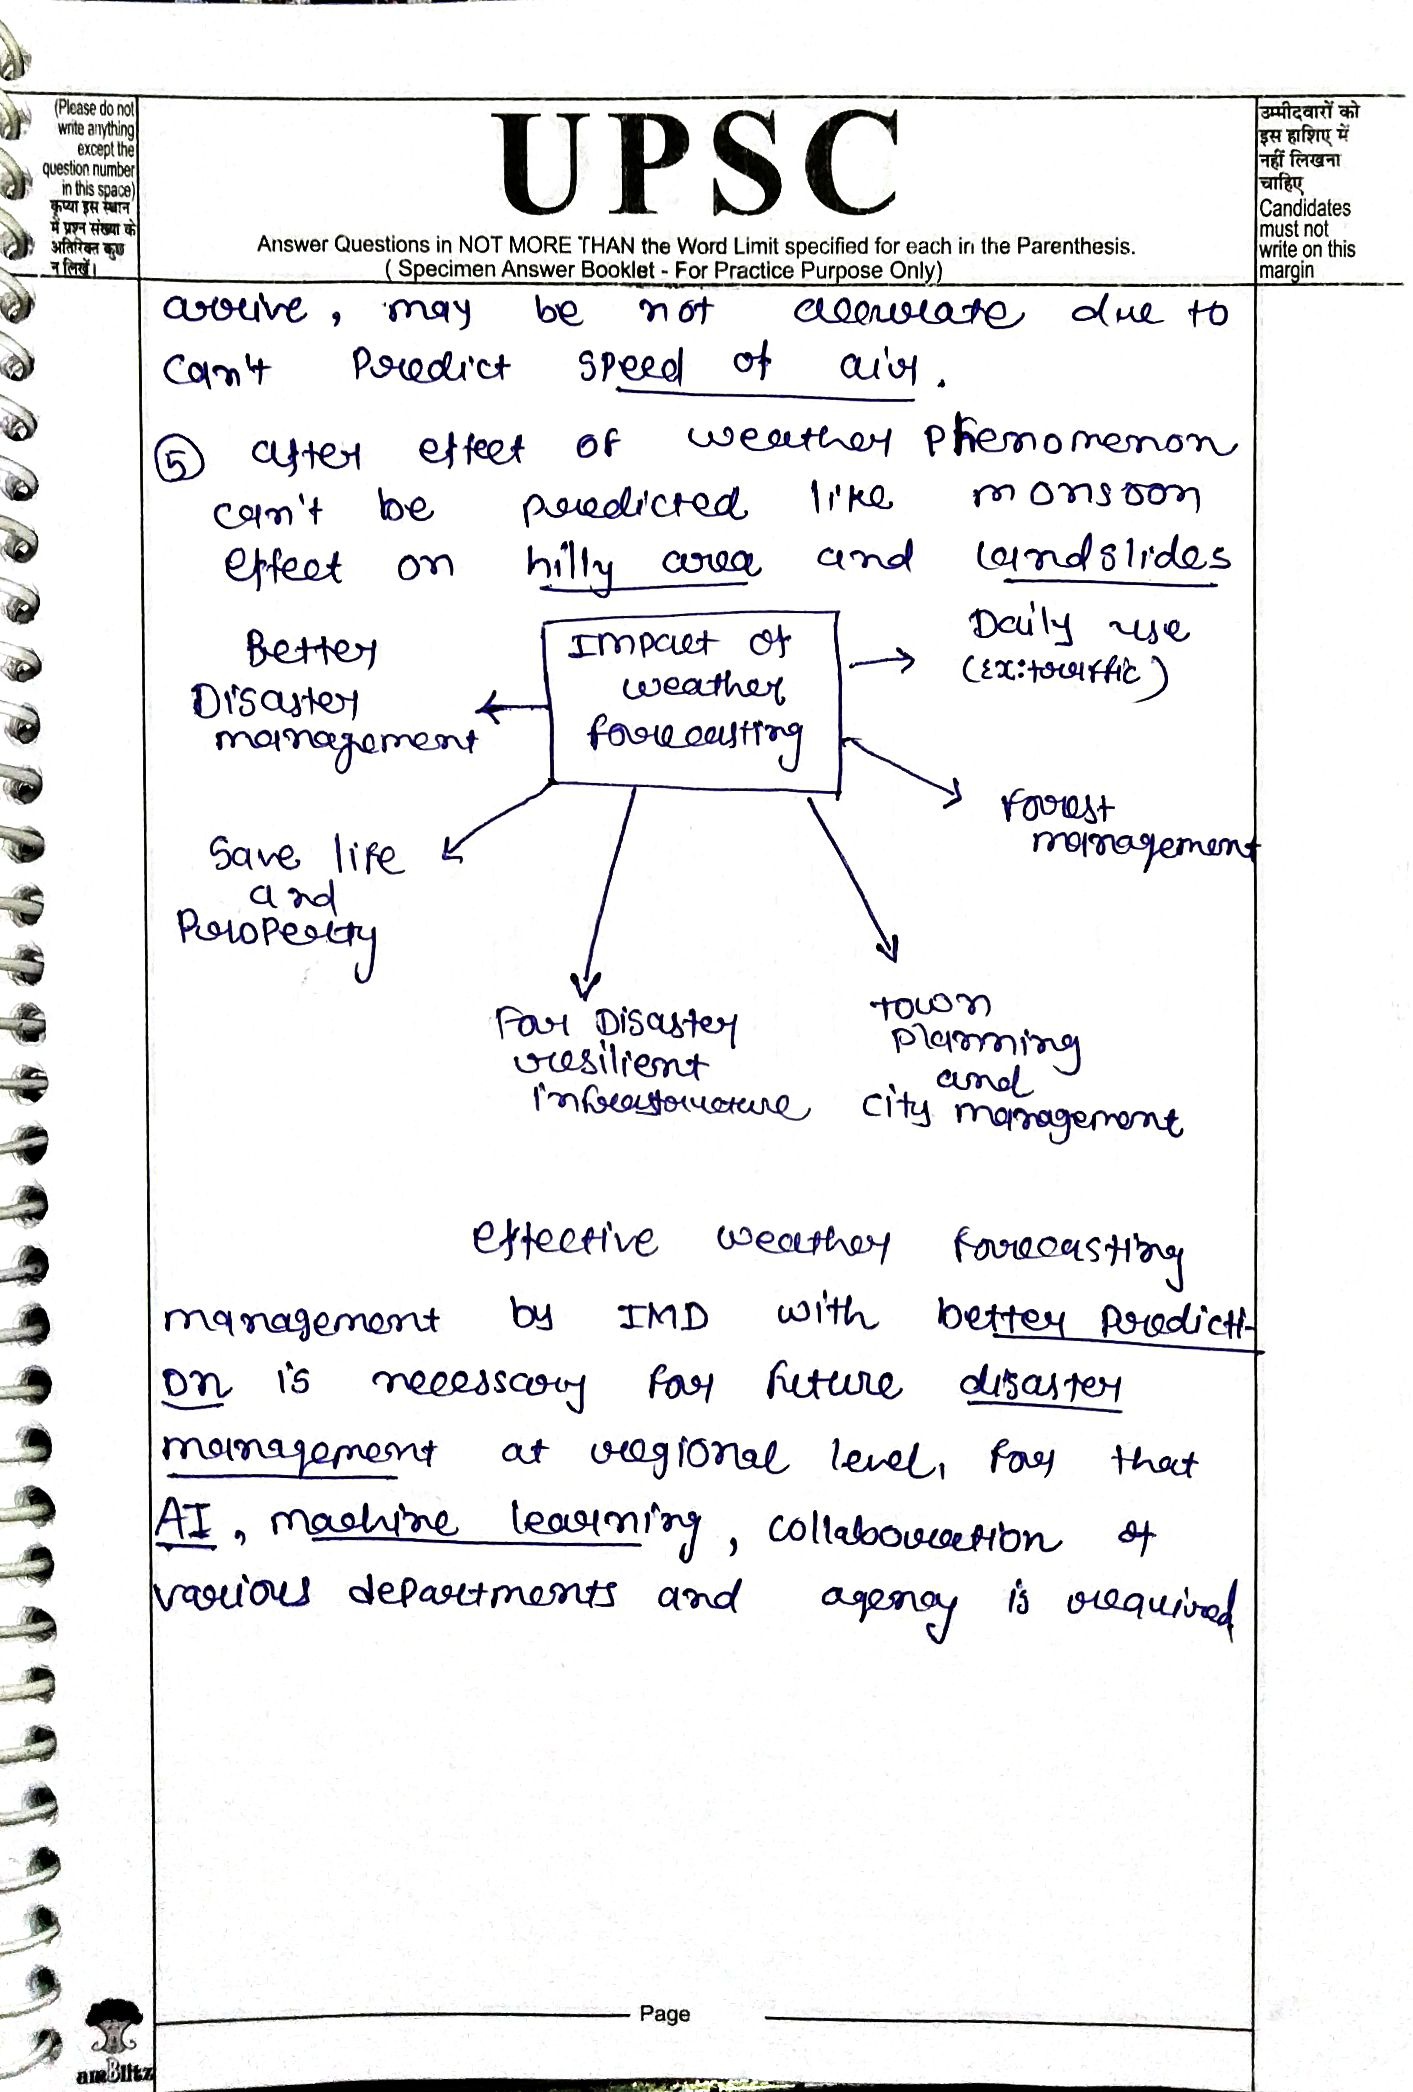 (Please do not
write anything
except the
question number
in this space)
कृप्या इस स्थान
में प्रश्न संख्या के
अतिरिक्त कुछ
न लिखें।
UPSC
Answer Questions in NOT MORE THAN the Word Limit specified for each in the Parenthesis.
( Specimen Answer Booklet - For Practice Purpose Only)
उम्मीदवारों को
इस हाशिए में
नहीं लिखना
चाहिए
Candidates
must not
write on this
margin
arrive, may be not accurate due to
can't Predict speed of air.
5 after effect of weather Phenomenon
can't be predicted like monsoon
effect on hilly area and landslides
Impact of
weather
forecasting
Better
Disaster
management
Daily use
(Ex:traffic)
forest
management
Save life
and
Property
For Disaster
resilient
infrastructure
town
planning
and
city management
effective weather forecasting
management by IMD with better predicti-
on is necessary for future disaster
management at regional level, for that
AI, machine learning, collaboration of
various departments and agency is required
Page
amBlitz